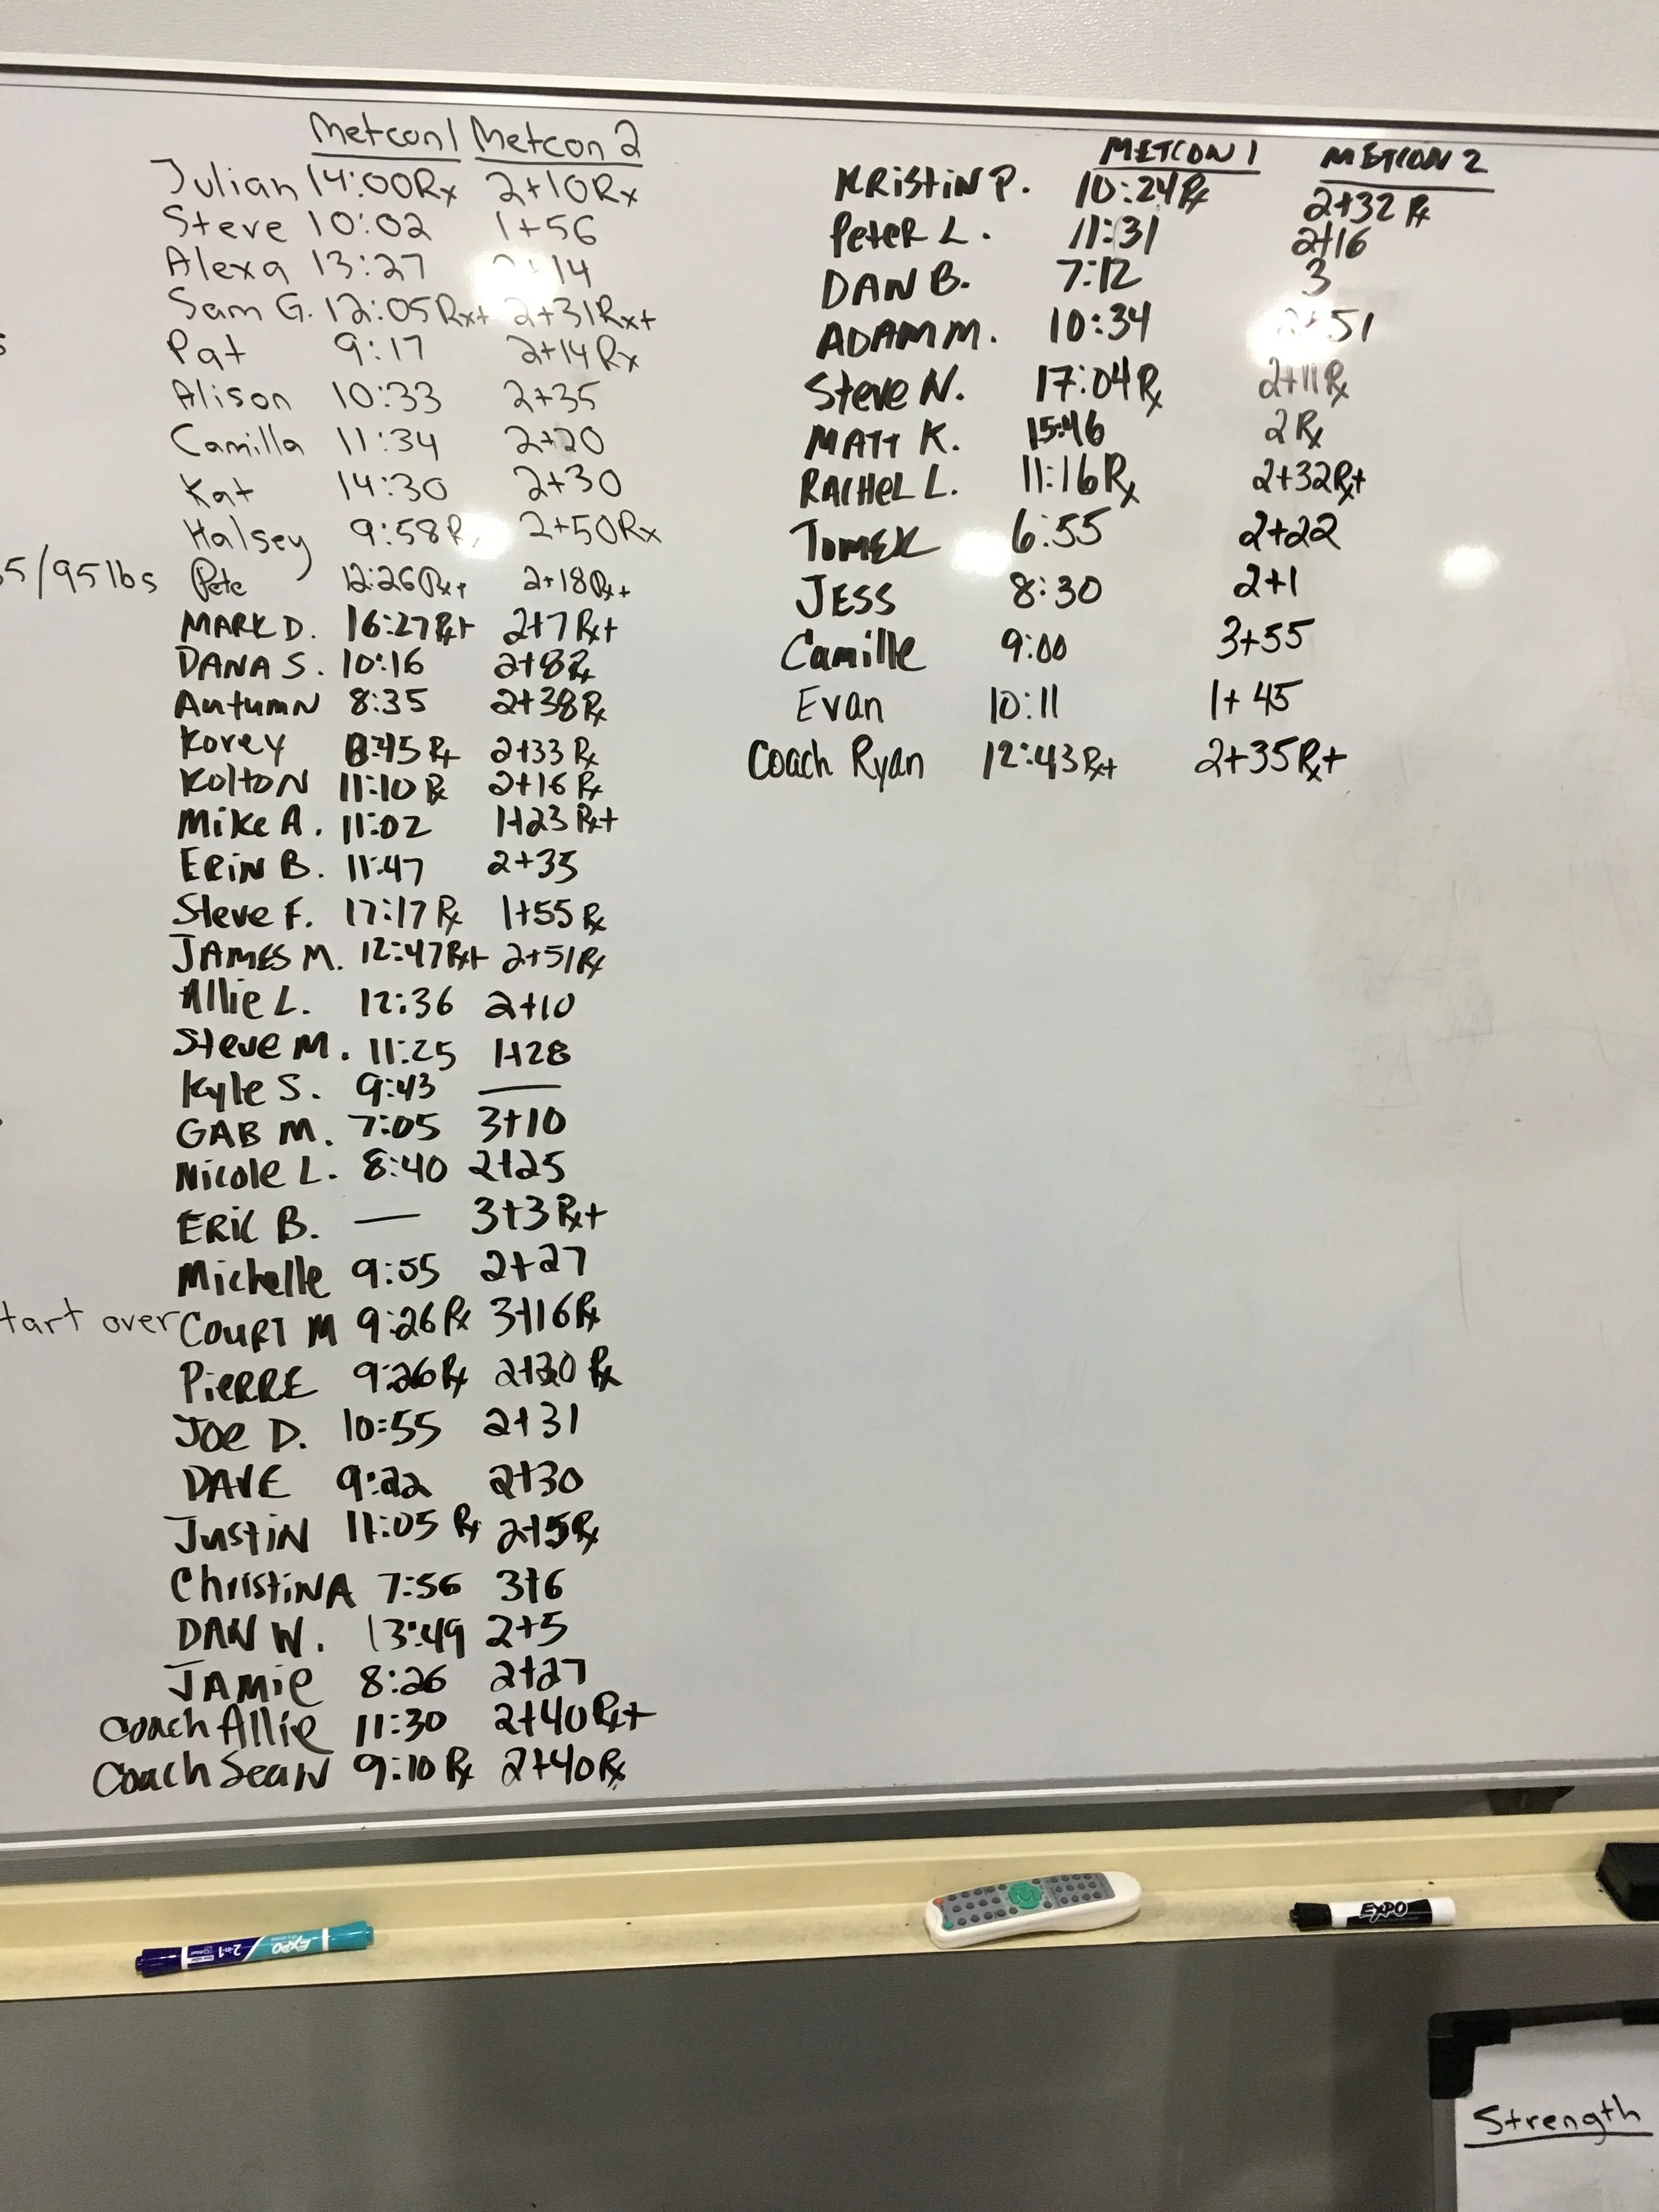 Metcon 1 Metcon 2
Julian 14:00Rx 2+10Rx
Steve 10:02 1+56
Alexa 13:27 2+14
Sam G. 12:05Rx+ 2+31Rx+
Pat 9:17 2+14Rx
Alison 10:33 2+35
Camilla 11:34 2+20
Kat 14:30 2+30
Halsey 9:58Rx 2+50Rx
5/95lbs
Pete 12:26Rx+ 2+18Rx+
MARK D. 16:27Rx+ 2+7Rx+
DANA S. 10:16 2+8Rx
Autumn 8:35 2+38Rx
Korey Rx+ 2+33 Rx
Kolton 11:10 Rx 2+16 Rx
Mike A. 11:02 1+23 Rx+
ERiN B. 11:47 2+35
Steve F. 17:17 Rx 1+55 Rx
JAMES M. 12:47Rx+ 2+51Rx
Allie L. 12:36 2+10
Steve M. 11:25 1+28
Kyle S. 9:43 —
GAB M. 7:05 3+10
Nicole L. 8:40 2+25
ERiC B. — 3+3 Rx+
Michelle 9:55 2+27
tart over
COURT M 9:26 Rx 3+16Rx
PiERRE 9:26Rx Rx
Joe D. 10:55 2+31
DAVE 9:22 2+30
JustiN 11:05 Rx 2+5Rx
ChristiNA 7:56 3+6
DAN W. 13:49 2+5
JAMie 8:26 2+27
Coach Allie 11:30 2+40Rx+
Coach SeaN 9:10 Rx 2+40Rx
METCON 1 METCON 2
KRistiN P. 10:24Rx 2+32 Rx
PeteR L. 11:31 2+16
DAN B. 7:12 3
ADAM M. 10:34 2+51
Steve N. 17:04Rx 2+11Rx
MATT K. 15:46 2 Rx
RACHeL L. 11:16Rx 2+32Rx+
TOMEK 6:55 2+22
JESS 8:30 2+1
Camille 9:00 3+55
Evan 10:11 1+45
Coach Ryan 12:43Rx+ 2+35Rx+
EXPO 2-in-1
EXPO
Strength